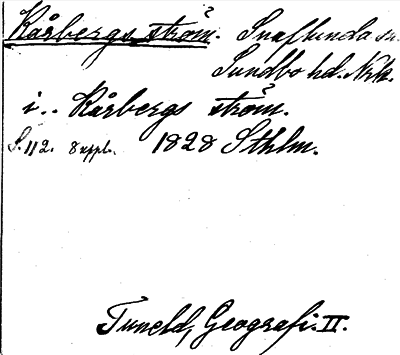 Kårbergs ström. Snaflunda sn.
Sundbo hd. Nrk.
i.. Kårbergs ström.
S. 112. 8 uppl. 1828 Sthlm.
Tuneld, Geografi. II.